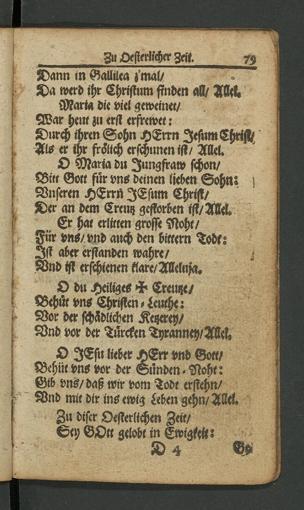 Zu Oesterlicher Zeit. 79
Dann in Gallilea z'mal/
Da werd ihr Christum finden all/ Allel.
Maria die viel geweinet/
War heut zu erst erfrewet:
Durch ihren Sohn HErrn Jesum Christ/
Als er ihr frölich erschunen ist/ Allel.
O Maria du Jungfraw schon/
Bitt Gott für vns deinen lieben Sohn:
Vnseren HErrn̄ JEsum Christ/
Der an dem Creutz gestorben ist/ Allel.
Er hat erlitten grosse Noht/
Für vns/ vnd auch den bittern Todt:
Ist aber erstanden wahre/
Vnd ist erschienen klare/ Alleluja.
O du Heiliges ✠ Creutze/
Behüt vns Christen-Leuthe:
Vor der schädlichen Ketzerey/
Vnd vor der Türcken Tyranney/ Allel.
O JEsu lieber HErr vnd Gott/
Behüt vns vor der Sünden-Noht:
Gib vns/ daß wir vom Todt erstehn/
Vnd mit dir ins ewig Leben gehn/ Allel.
Zu diser Oesterlichen Zeit/
Sey GOtt gelobt in Ewigkeit:
D 4